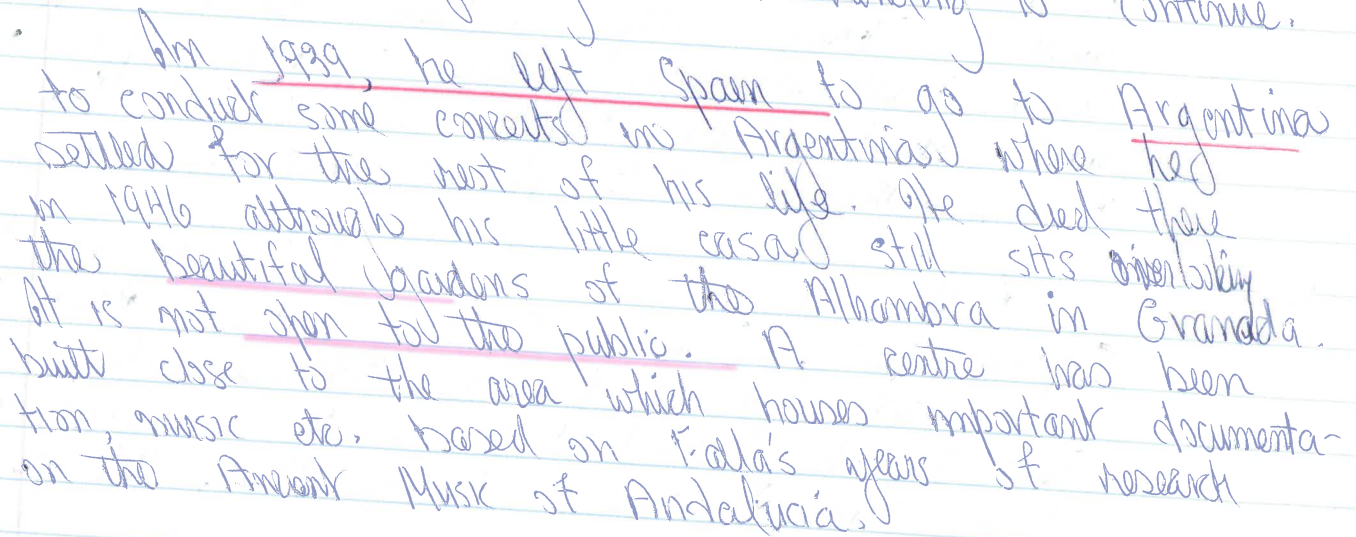 continue.
In 1939, he left Spain to go to Argentina
to conduct some concerts in Argentina where he
settled for the rest of his life. He died there
in 1946 although his little casa still sits overlooking
the beautiful gardens of the Alhambra in Granada.
It is not open to the public. A centre has been
built close to the area which houses important documenta-
tion, music etc. based on Falla's years of research
on the Ancient Music of Andalucía.